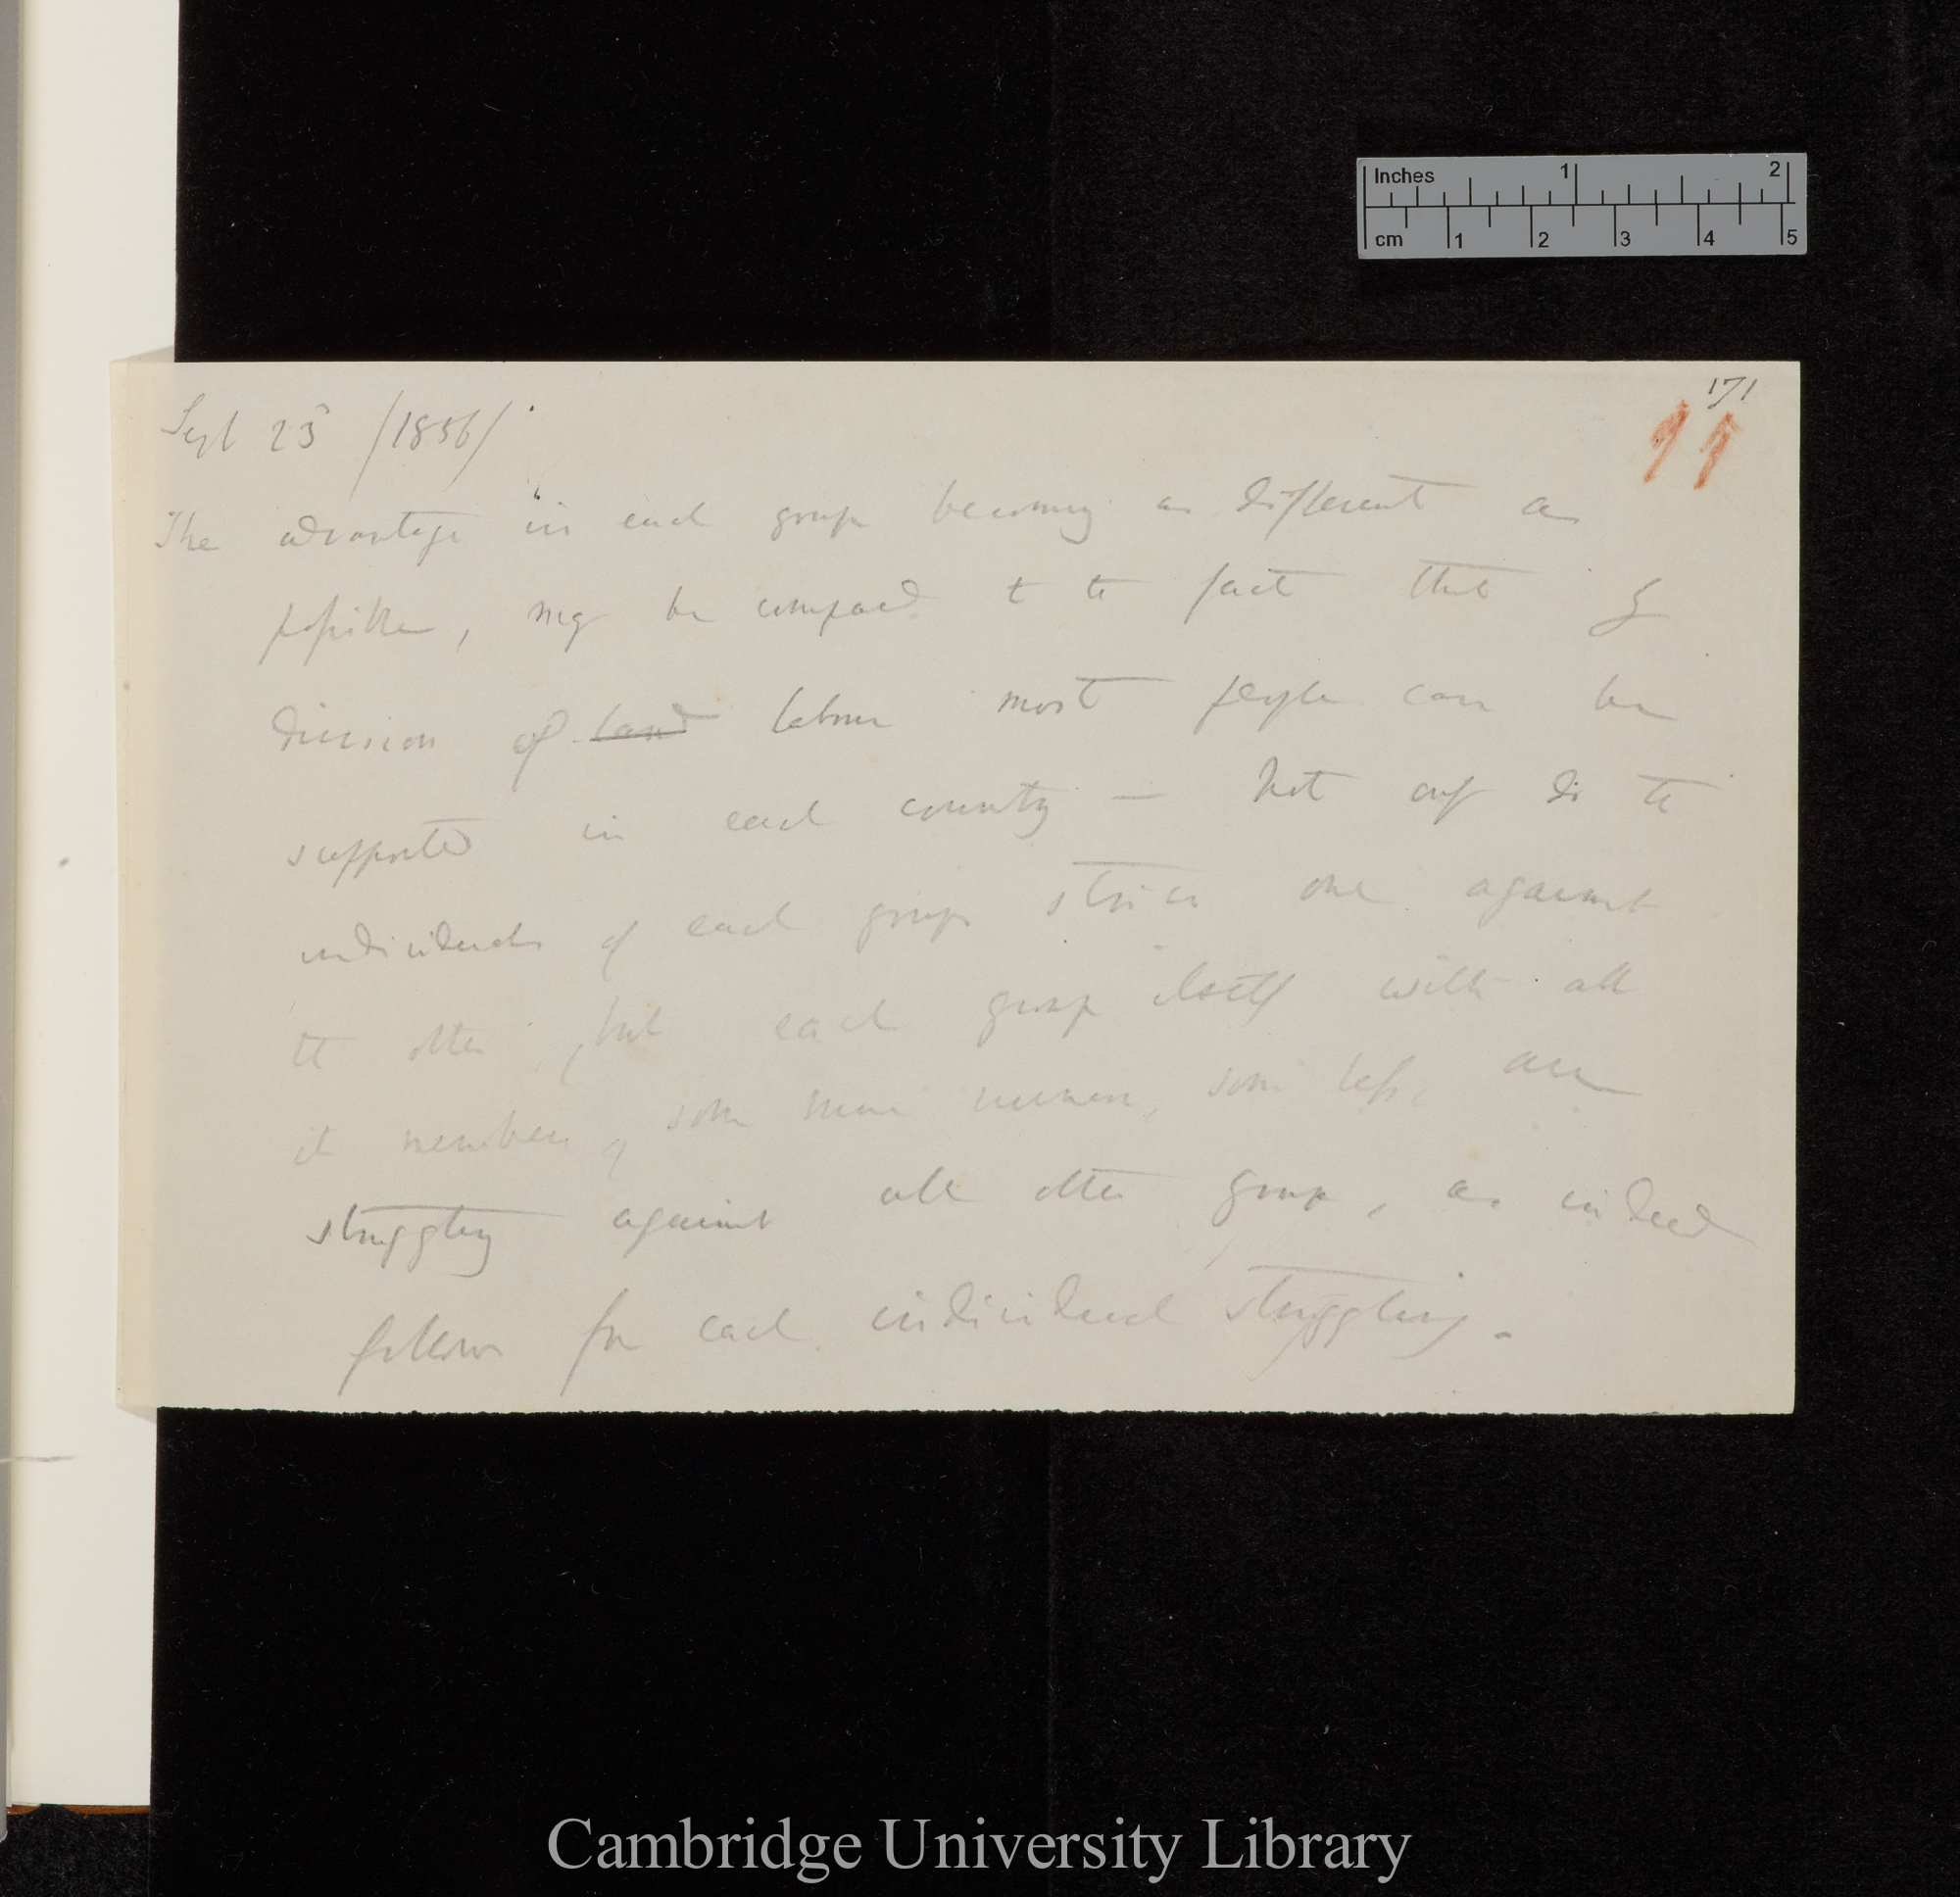 Inches 1 2
cm 1 2 3 4 5
171
11
Sept 23 /1856/
The advantage in each group becoming as different as
possible, may be compared to the fact that by
division of land labour most people can be
supported in each country — Not only do the
individuals of each group strive one against
the other, but each group itself with all
its members, some more numerous, some less, are
struggling against all other groups, as indeed
follows from each individual struggling.
Cambridge University Library